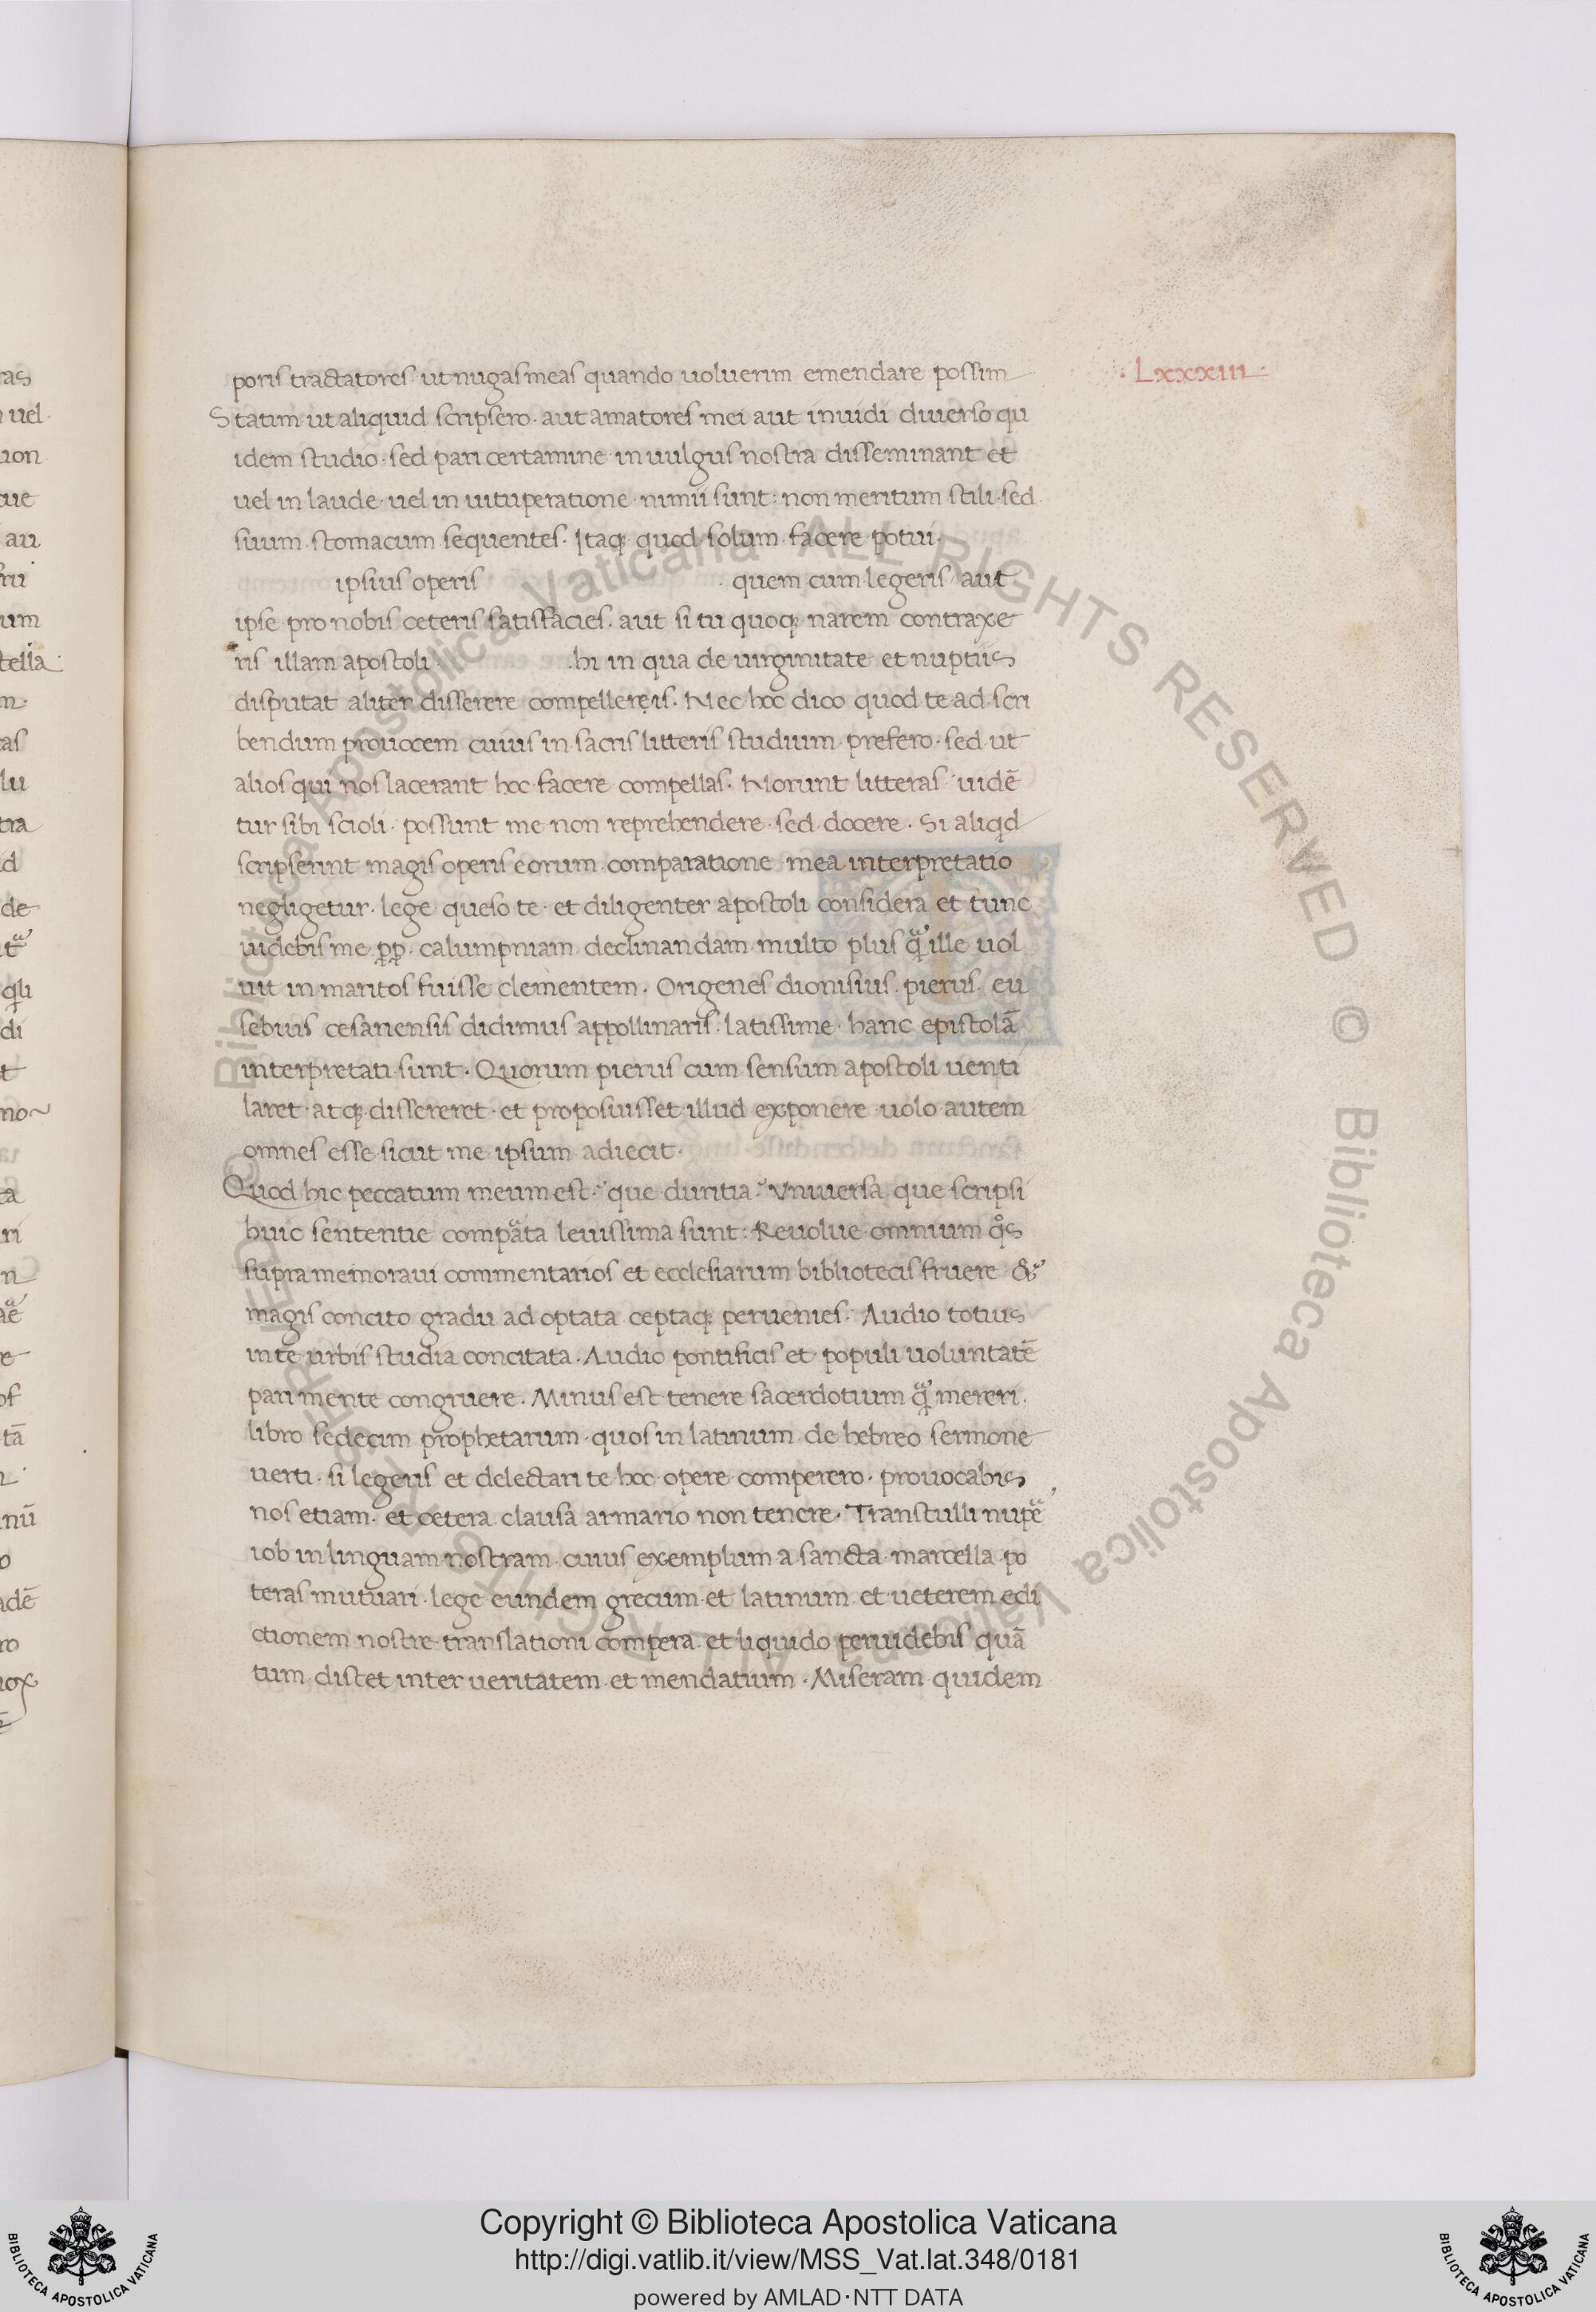 poris tractatores ut nugas meas quando uoluerim emendare possim
·Lxxxiii·
Statim ut aliquid scripsero· aut amatores mei aut inuidi diuerso qu
idem studio· sed pari certamine in uulgus nostra disseminant et
uel in laude· uel in uituperatione nimii sunt: non meritum stili· sed
suum stomacum sequentes· Itaq; quod solum facere potui·
ipsius operis quem cum legeris aut
ipse pro nobis ceteris satisfacies· aut si tu quoq; narem contraxe
ris illam apostoli· ·hi in qua de uirginitate et nuptiis
disputat aliter disserere compellereis· Nec hoc dico quod te ad scri
bendum prouocem cuius in sacris litteris studium prefero· sed ut
alios qui nos lacerant hoc facere compellas· Norunt litteras uidē
tur sibi scioli· possunt me non reprehendere· sed docere· Si aliqd
scripserint magis operis eorum comparatione mea interpretatio
negligetur· lege queso te· et diligenter apostoli considera et tunc
uidebis me p̱p̱· calumpniam declinandam multo plus qͣ ille uol
uit in maritos fuisse clementem· Origenes dionisius· pierus· eu
sebius cesariensis didimus appollinaris· latissime hanc epistolā
interpretati sunt· Quorum pierus cum sensum apostoli uenti
laret· atq; dissereret· et proposuisset illud exponere uolo autem
omnes esse sicut me ipsum adiecit·
Quod hic peccatum meum est· que duritia· Vniuersa que scripsi
huic sententie compͣata leuissima sunt: Reuolue omnium qͦs
supra memoraui commentarios et ecclesiarum bibliotecis fruere &
magis concito gradu ad optata ceptaq; peruenies· Audio totius
in te urbis studia concitata· Audio pontificis et populi uoluntatē
pari mente congruere· Minus est tenere sacerdotium qͣ mereri·
libro sedecim prophetarum quos in latinum de hebreo sermone
uerti· si legeris et delectari te hoc opere comperero· prouocabis
nos etiam· et cetera clausa armario non tenere· Transtulli nupeͣ
iob in linguam nostram cuius exemplum a sancta marcella po
teras mutuari· lege eundem grecum et latinum et ueterem edi
ctionem nostre translationi compera et liquido peruidebis quā
tum distet inter ueritatem et mendatium· Miseram quidem
Copyright © Biblioteca Apostolica Vaticana
http://digi.vatlib.it/view/MSS_Vat.lat.348/0181
powered by AMLAD·NTT DATA